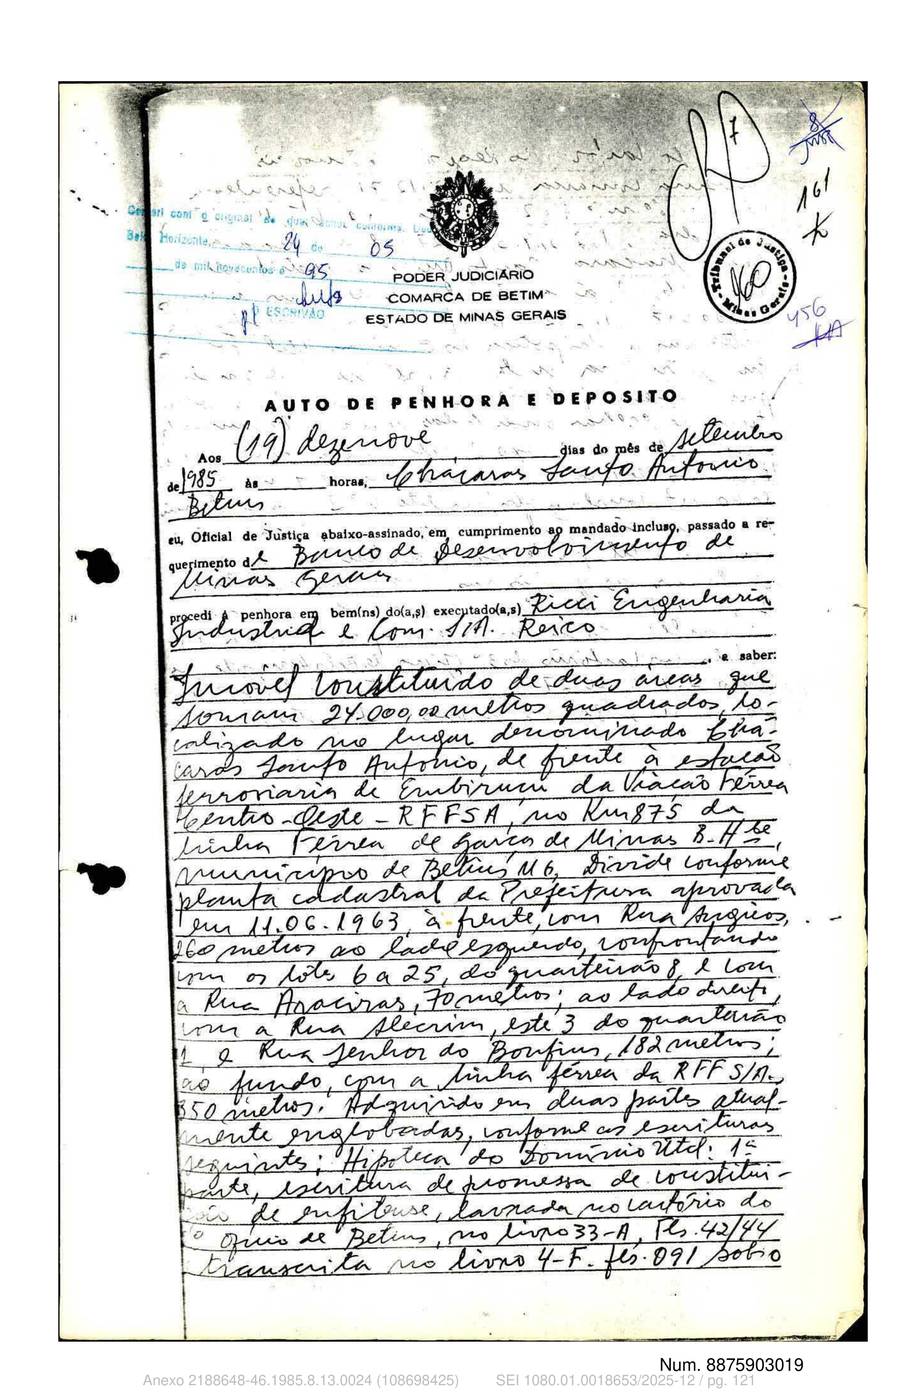 7
8
161
Tribunal de Justiça
160
Minas Gerais
456
Conferi com o original
Belo Horizonte, 24 de 05
de mil novecentos e 95
p/ ESCRIVÃO
PODER JUDICIÁRIO
COMARCA DE BETIM
ESTADO DE MINAS GERAIS
AUTO DE PENHORA E DEPOSITO
Aos (19) dezenove dias do mês de setembro
de 1985 às horas, Chácaras Santo Antonio
Betim
eu, Oficial de Justiça abaixo-assinado, em cumprimento ao mandado incluso, passado a re-
querimento de Banco de Desenvolvimento de
Minas Gerais
procedi á penhora em bem(ns) do(a,s) executado(a,s) Ricci Engenharia
Industrial e Com. S/A. Reico
, a saber:
Imovel constituido de duas áreas que
somam 24.000,00 metros quadrados, lo-
calizado no lugar denominado Chá-
caras Santo Antonio, de frente à estacão
ferroviaria de Embiruçu da Viacão Férrea
Centro-Oeste - RFFSA, no Km 875 da
linha Férrea de Garça de Minas B. Hte,
municípro de Betim MG, Divide conforme
planta cadastral da Prefeitura aprovada
em 11.06.1963, à frente, com Rua Angicos,
260 metros ao lado esquerdo, confrontando
com os lotes 6 a 25, do quarteirão 8, e com
a Rua Araciras, 70 metros; ao lado direito,
com a Rua Alecrim, este 3 do quarteirão
1 e Rua Senhor do Bonfim, 182 metros;
ao fundo, com a linha férrea da RFFS/A.,
350 metros. Adquirido em duas partes atual-
mente englobadas, conforme as escrituras
seguintes: Hipoteca do Domínio Util: 1ª
parte, escritura de promessa de constitui-
ção de enfiteuse, lavrada no cartório do
º oficio de Betim, no livro 33-A, Fls. 42/44
transcrita no livro 4-F. fls. 091 sobio
Num. 8875903019
Anexo 2188648-46.1985.8.13.0024 (108698425) SEI 1080.01.0018653/2025-12 / pg. 121